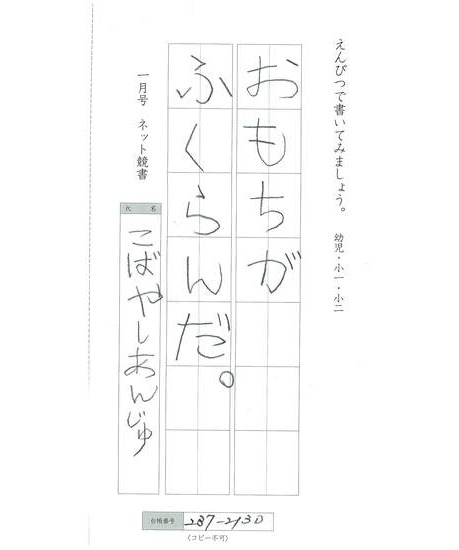 えんぴつで書いてみましょう。 幼児・小一・小二
おもちが
ふくらんだ。
一月号 ネット競書
氏 名
こばやしあんじゅ
台帳番号 287-2130
(コピー不可)